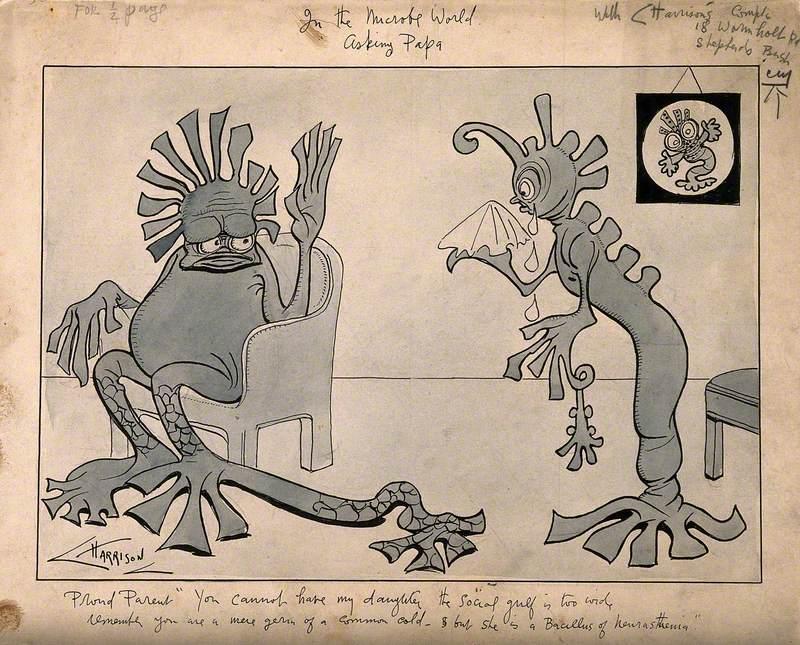 For ½ page
In the Microbe World
Asking Papa
With C Harrison's Compts
18 Wormholt Rd
Shepherds Bush
C HARRISON
Proud Parent "You cannot have my daughter, the social gulf is too wide,
remember you are a mere germ of a common cold - & but she is a Bacillus of Neurasthenia"